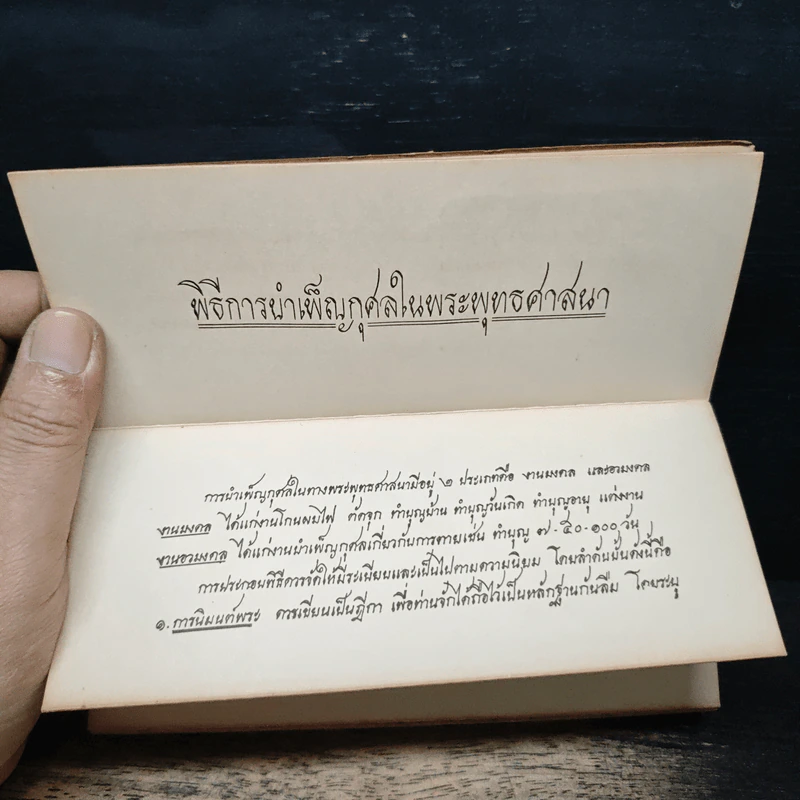 พิธีการบำเพ็ญกุศลในพระพุทธศาสนา
การบำเพ็ญกุศลในทางพระพุทธศาสนามีอยู่ ๒ ประเภทคือ งานมงคล และอวมงคล
งานมงคล ได้แก่งานโกนผมไฟ ตัดจุก ทำบุญบ้าน ทำบุญวันเกิด ทำบุญอายุ แต่งงาน
งานอวมงคล ได้แก่งานบำเพ็ญกุศลเกี่ยวกับการตายเช่น ทำบุญ ๗-๕๐-๑๐๐ วัน
การประกอบพิธีควรจัดให้มีระเบียบและเป็นไปตามความนิยม โดยลำดับนั้นดังนี้คือ
๑. การนิมนต์พระ ควรเขียนเป็นฎีกา เพื่อท่านจักได้ถือไว้เป็นหลักฐานกันลืม โดยระบุ